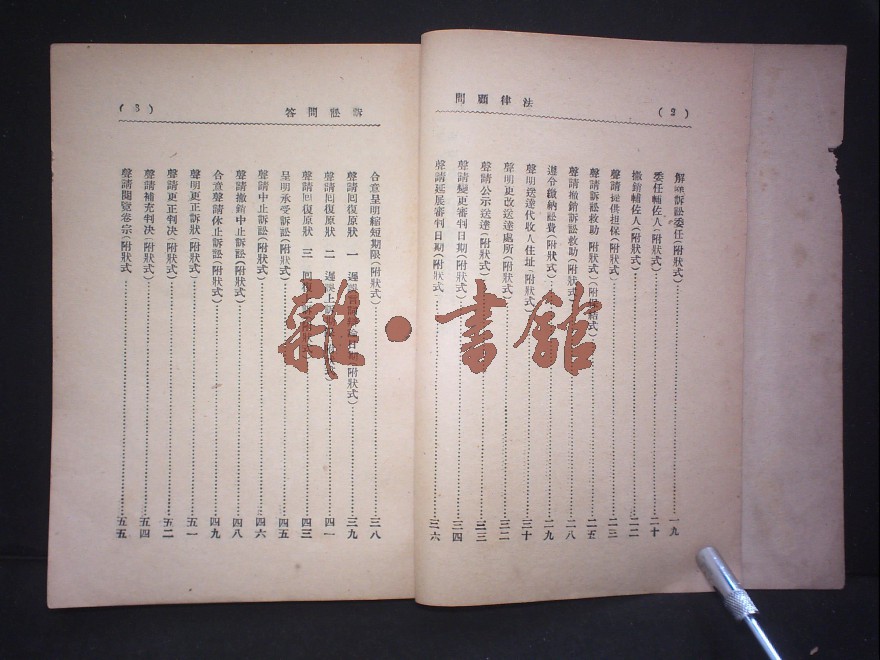 (2)
法律顧問
解除訴訟委任(附狀式)………一九
委任輔佐人(附狀式)………二十
撤銷輔佐人(附狀式)………二二
聲請提供担保(附狀式)………二三
聲請訴訟救助 附狀式)(附保結式)………二五
聲請撤銷訴訟救助(附狀式)………二八
遵令繳納訟費(附狀式)………二九
聲明送達代收人住址(附狀式)………三十
聲明更改送達處所(附狀式)………三二
聲請公示送達(附狀式)………三三
聲請變更審判日期(附狀式)………三四
聲請延展審判日期(附狀式)………三六
訴訟問答
(3)
合意呈明縮短期限(附狀式)………三八
聲請回復原狀 一 遲誤 日期(附狀式)………三九
聲請回復原狀 二 遲誤上 狀式)………四一
聲請回復原狀 三 回復………四三
呈明承受訴訟(附狀式)………四五
聲請中止訴訟(附狀式)………四六
聲請撤銷中止訴訟(附狀式)………四八
合意聲請休止訴訟(附狀式)………四九
聲明更正訴狀(附狀式)………五一
聲請更正判决(附狀式)………五二
聲請補充判决(附狀式)………五四
聲請閱覽卷宗(附狀式)………五五
雜·書館